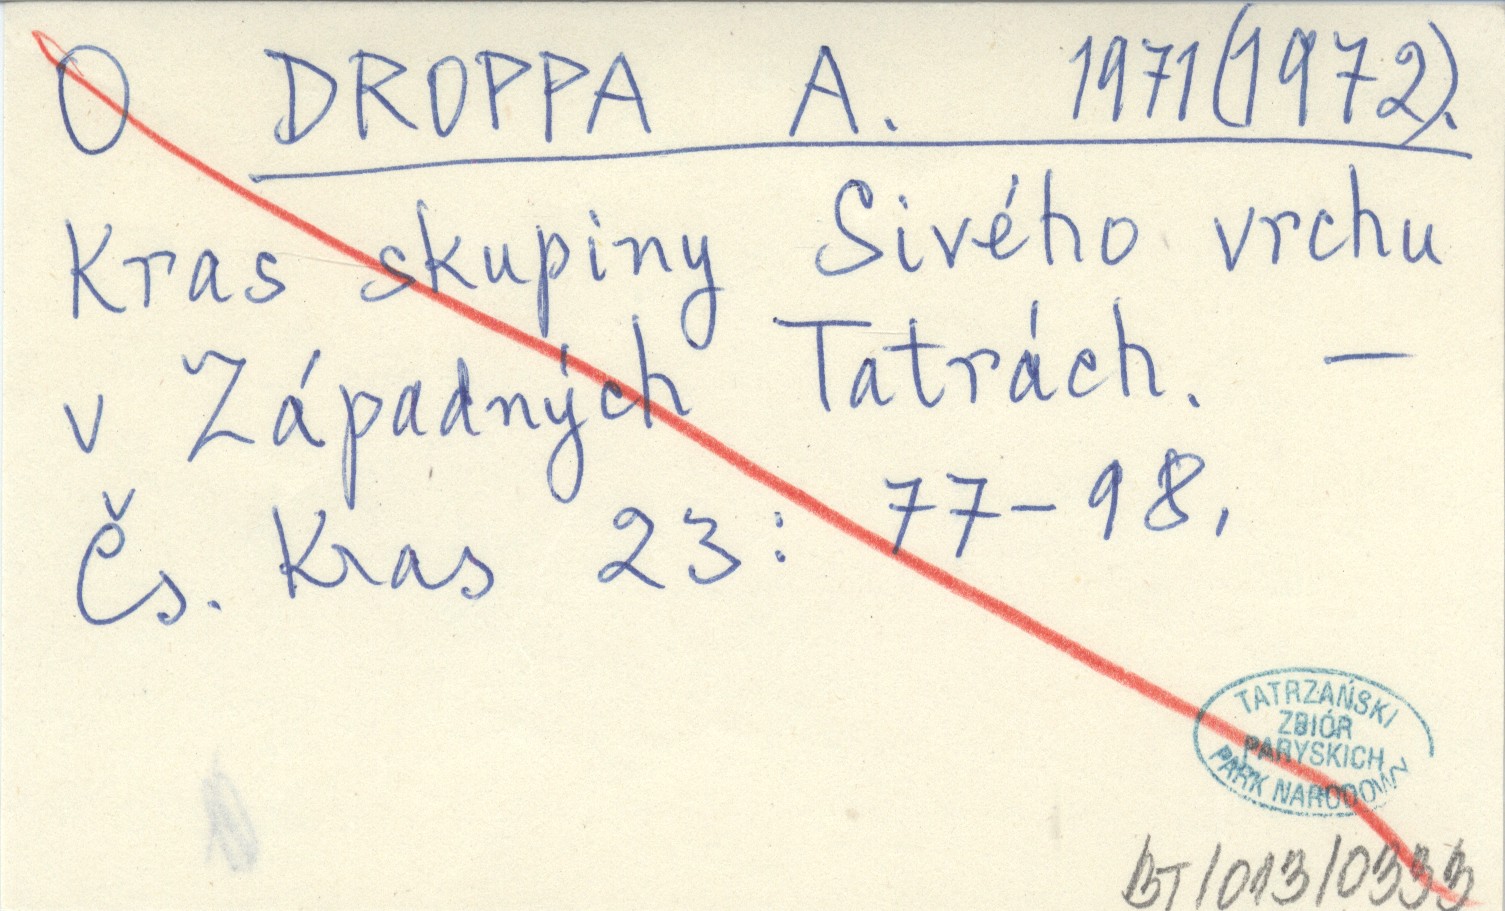 O DROPPA A. 1971(1972).
Kras skupiny Sivého vrchu
v Západných Tatrách. —
Čs. Kras 23: 77-98.
TATRZAŃSKI
ZBIÓR
PARYSKICH
PARK NARODOWY
BT/013/0333